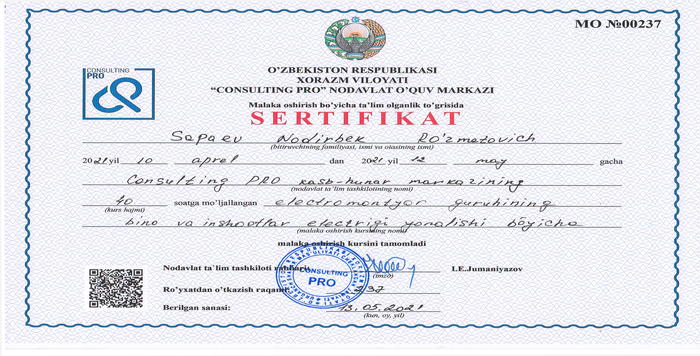 MO №00237
CONSULTING
PRO
O’ZBEKISTON RESPUBLIKASI
XORAZM VILOYATI
“CONSULTING PRO” NODAVLAT O’QUV MARKAZI
Malaka oshirish bo’yicha ta’lim olganlik to’grisida
SERTIFIKAT
Sapaev Nodirbek Ro'zmetovich
(bitiruvchining familiyasi, ismi va otasining ismi)
2021 yil 10 aprel dan 2021 yil 12 may gacha
Consulting PRO kasb-hunar markazining
(nodavlat ta`lim tashkilotining nomi)
40 soatga mo’ljallangan electromontyor guruhining
(kurs hajmi)
bino va inshootlar electrigi yonalishi bo'yicha
(malaka oshirish kursining nomi)
malaka oshirish kursini tamomladi
Nodavlat ta`lim tashkiloti I.E.Jumaniyazov
(imzo)
CONSULTING
PRO
Ro’yxatdan o’tkazish raqami 237
Berilgan sanasi: 13.05.2021
(kun, oy, yil)